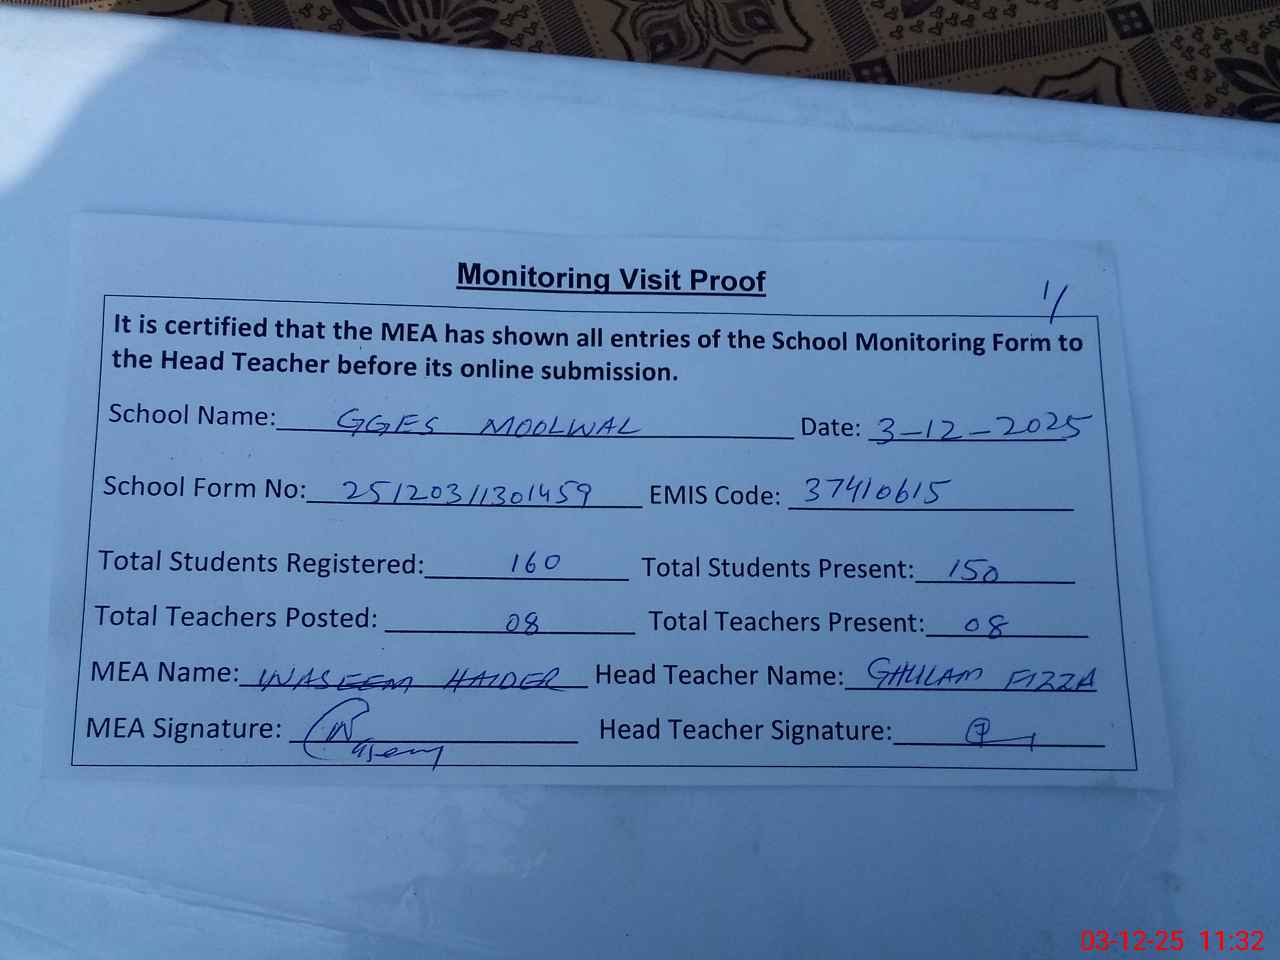 Monitoring Visit Proof
1/
It is certified that the MEA has shown all entries of the School Monitoring Form to
the Head Teacher before its online submission.
School Name: GGES MOOLWAL Date: 3-12-2025
School Form No: 25120311301459 EMIS Code: 37410615
Total Students Registered: 160 Total Students Present: 150
Total Teachers Posted: 08 Total Teachers Present: 08
MEA Name: WASEEM HAIDER Head Teacher Name: GHULAM FIZZA
MEA Signature: Head Teacher Signature:
03-12-25 11:32